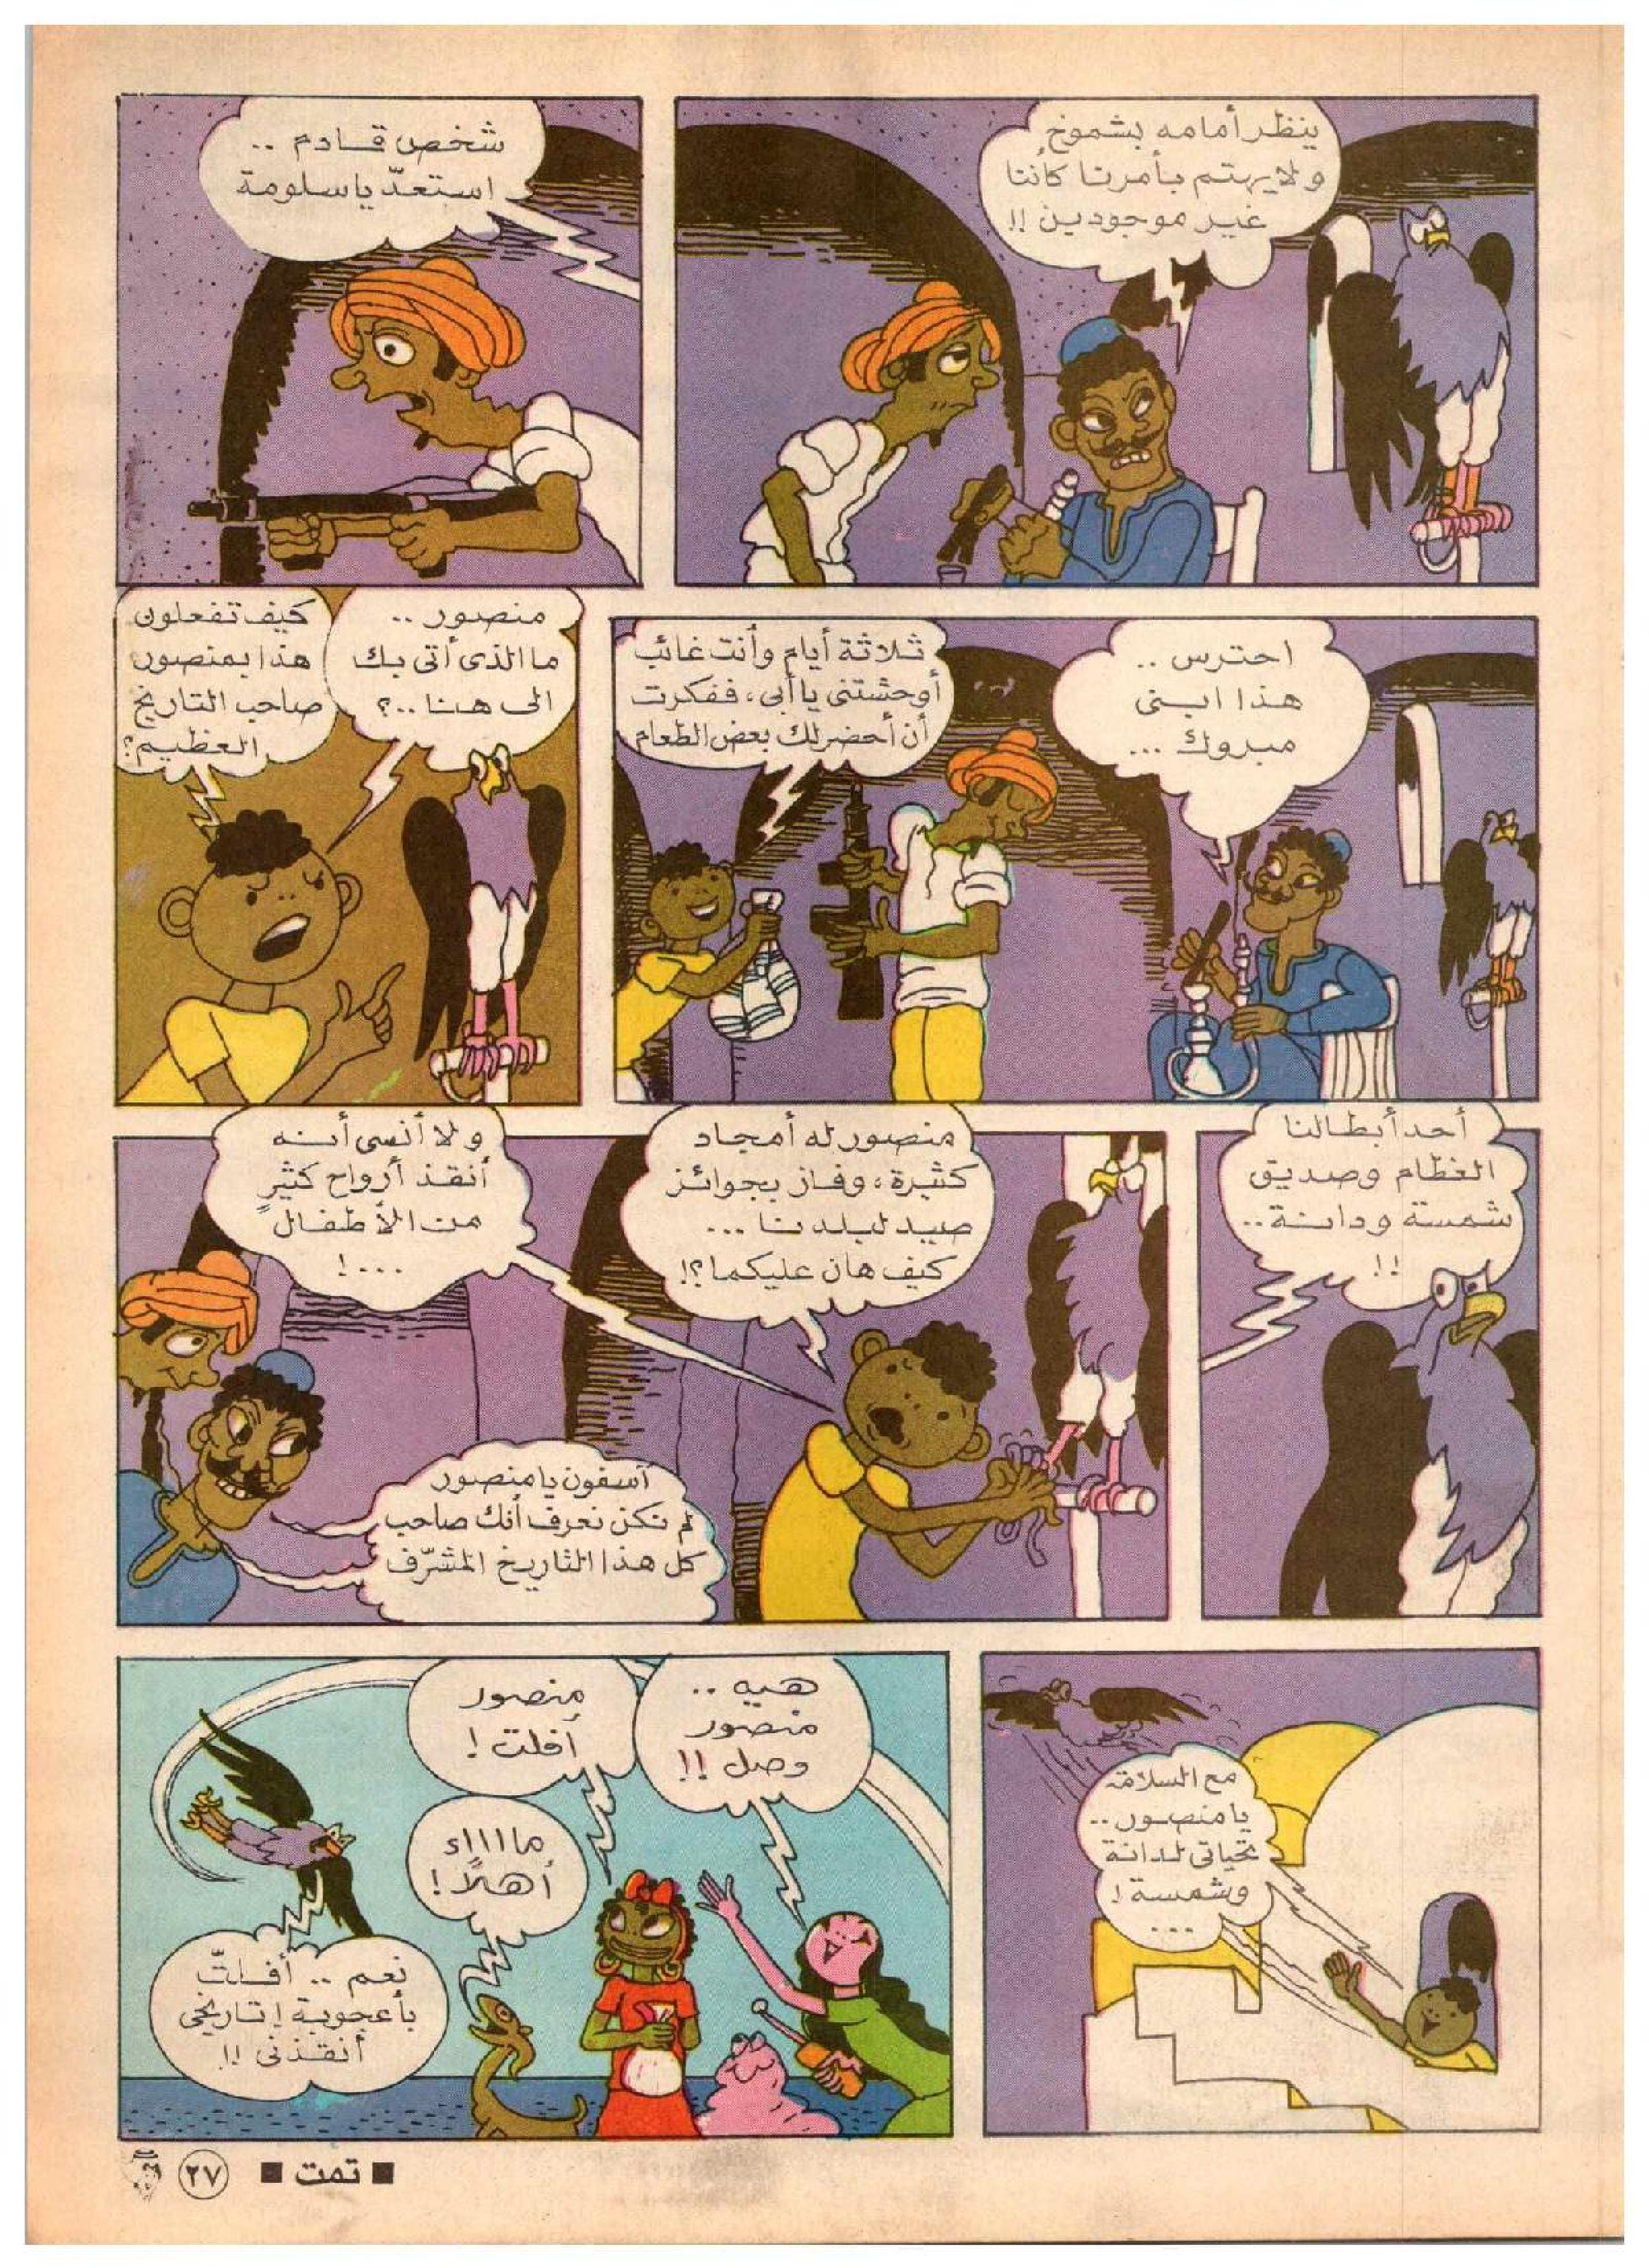 ينظر أمامه بشموخ
ولا يهتم بأمرنا كأننا
غير موجودين !!
شخص قادم ..
استعدّ يا سلومة
احترس ..
هذا ابنى
مبروك ...
ثلاثة أيام وأنت غائب
أوحشتنى يا أبى، ففكرت
أن أحضر لك بعض الطعام
منصور ..
ما الذى أتى بك
الى هنا ..؟
كيف تفعلون
هذا بمنصور
صاحب التاريخ
العظيم؟
أحد أبطالنا
العظام وصديق
شمسة ودانة ..
!!
منصور له أمجاد
كثيرة، وفاز بجوائز
صيد لبلدنا ...
كيف هان عليكما؟!
ولا أنسى أنه
أنقذ أرواح كثيرٍ
من الأطفال
...!
آسفون يا منصور
لم نكن نعرف أنك صاحب
كل هذا التاريخ المشرّف
مع السلامة
يا منصور ..
تحياتى لدانة
وشمسة !
...
هيه ..
منصور
وصل !!
منصور
أفلت !
مااااء
أهلاً !
نعم .. أفلتّ
بأعجوبة ! تاريخى
أنقذنى !!
■ تمت ■
٢٧